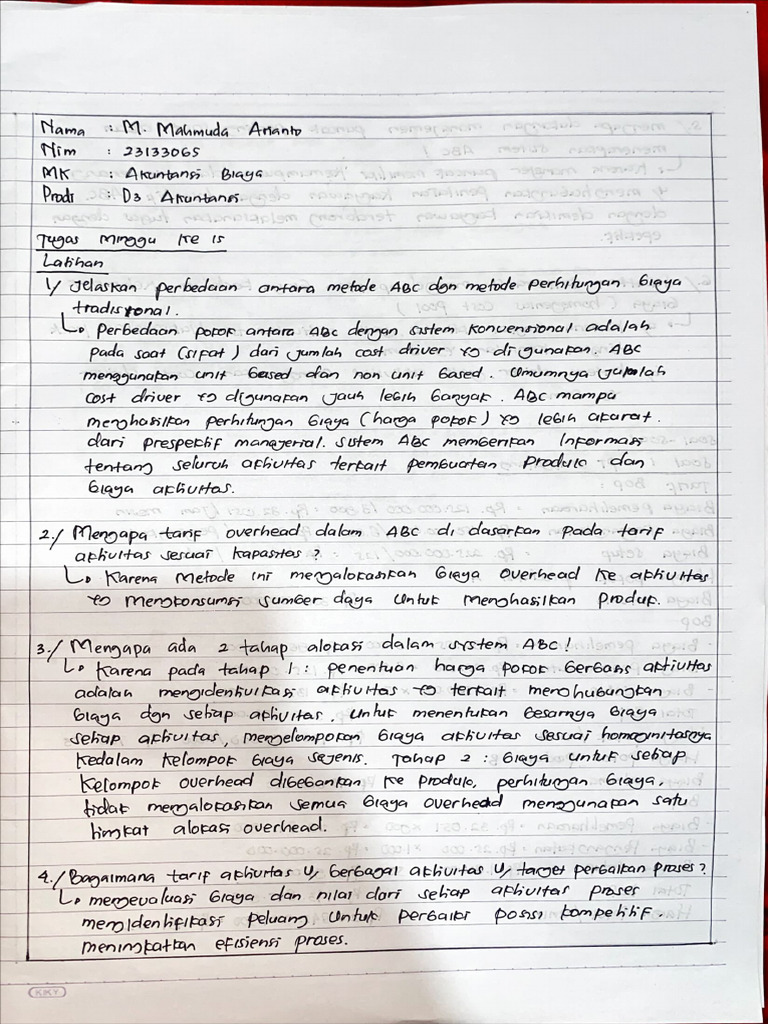 Nama : M. Mahmuda Arianto
Nim : 23133065
MK : Akuntansi Biaya
Prodi : D3 Akuntansi
Tugas Minggu ke 15
Latihan
1/ Jelaskan perbedaan antara metode ABC dgn metode perhitungan biaya
tradisional.
↳ Perbedaan pokok antara ABC dengan sistem konvensional adalah
pada saat (sifat) dari jumlah cost driver yg digunakan. ABC
menggunakan unit based dan non unit based. Umumnya jumlah
cost driver yg digunakan jauh lebih banyak. ABC mampu
menghasilkan perhitungan biaya (harga pokok) yg lebih akurat.
dari prespektif manajerial. sistem ABC memberikan Informasi
tentang seluruh aktivitas terkait pembuatan Produk dan
biaya aktivitas.
2./ Mengapa tarif overhead dalam ABC di dasarkan pada tarif
aktivitas sesuai kapasitas?
↳ Karena Metode ini mengalokasikan biaya overhead ke aktivitas
yg mengkonsumsi sumber daya untuk menghasilkan produk.
3./ Mengapa ada 2 tahap alokasi dalam system ABC!
↳ Karena pada tahap 1 : penentuan harga pokok berbasis aktivitas
adalah mengidentivikasi aktivitas yg terkait menghubungkan
biaya dgn setiap aktivitas. Untuk menentukan besarnya biaya
setiap aktivitas, mengelompokan biaya aktivitas sesuai homoginitasnya
kedalam kelompok biaya sejenis. Tahap 2 : biaya untuk setiap
kelompok overhead dibebankan ke produk, perhitungan biaya,
tidak mengalokasikan semua biaya overhead menggunakan satu
tingkat alokasi overhead.
4./ Bagaimana tarif aktivitas U/ berbagai aktivitas U/ target perbaikan proses?
↳ mengevaluasi biaya dan nilai dari setiap aktivitas proses
mengidentifikasi peluang untuk perbaiki posisi kompetitif.
meningkatkan efisiensi proses.
KKY